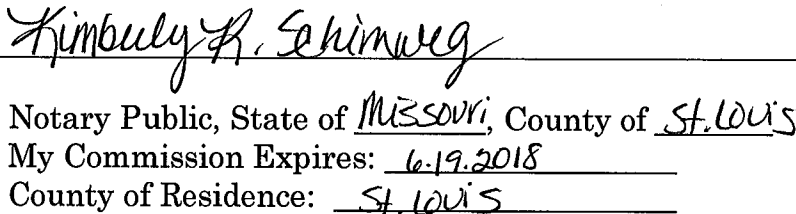 Kimberly R. Schimweg
Notary Public, State of Missouri, County of St. Louis
My Commission Expires: 6.19.2018
County of Residence: St. Louis